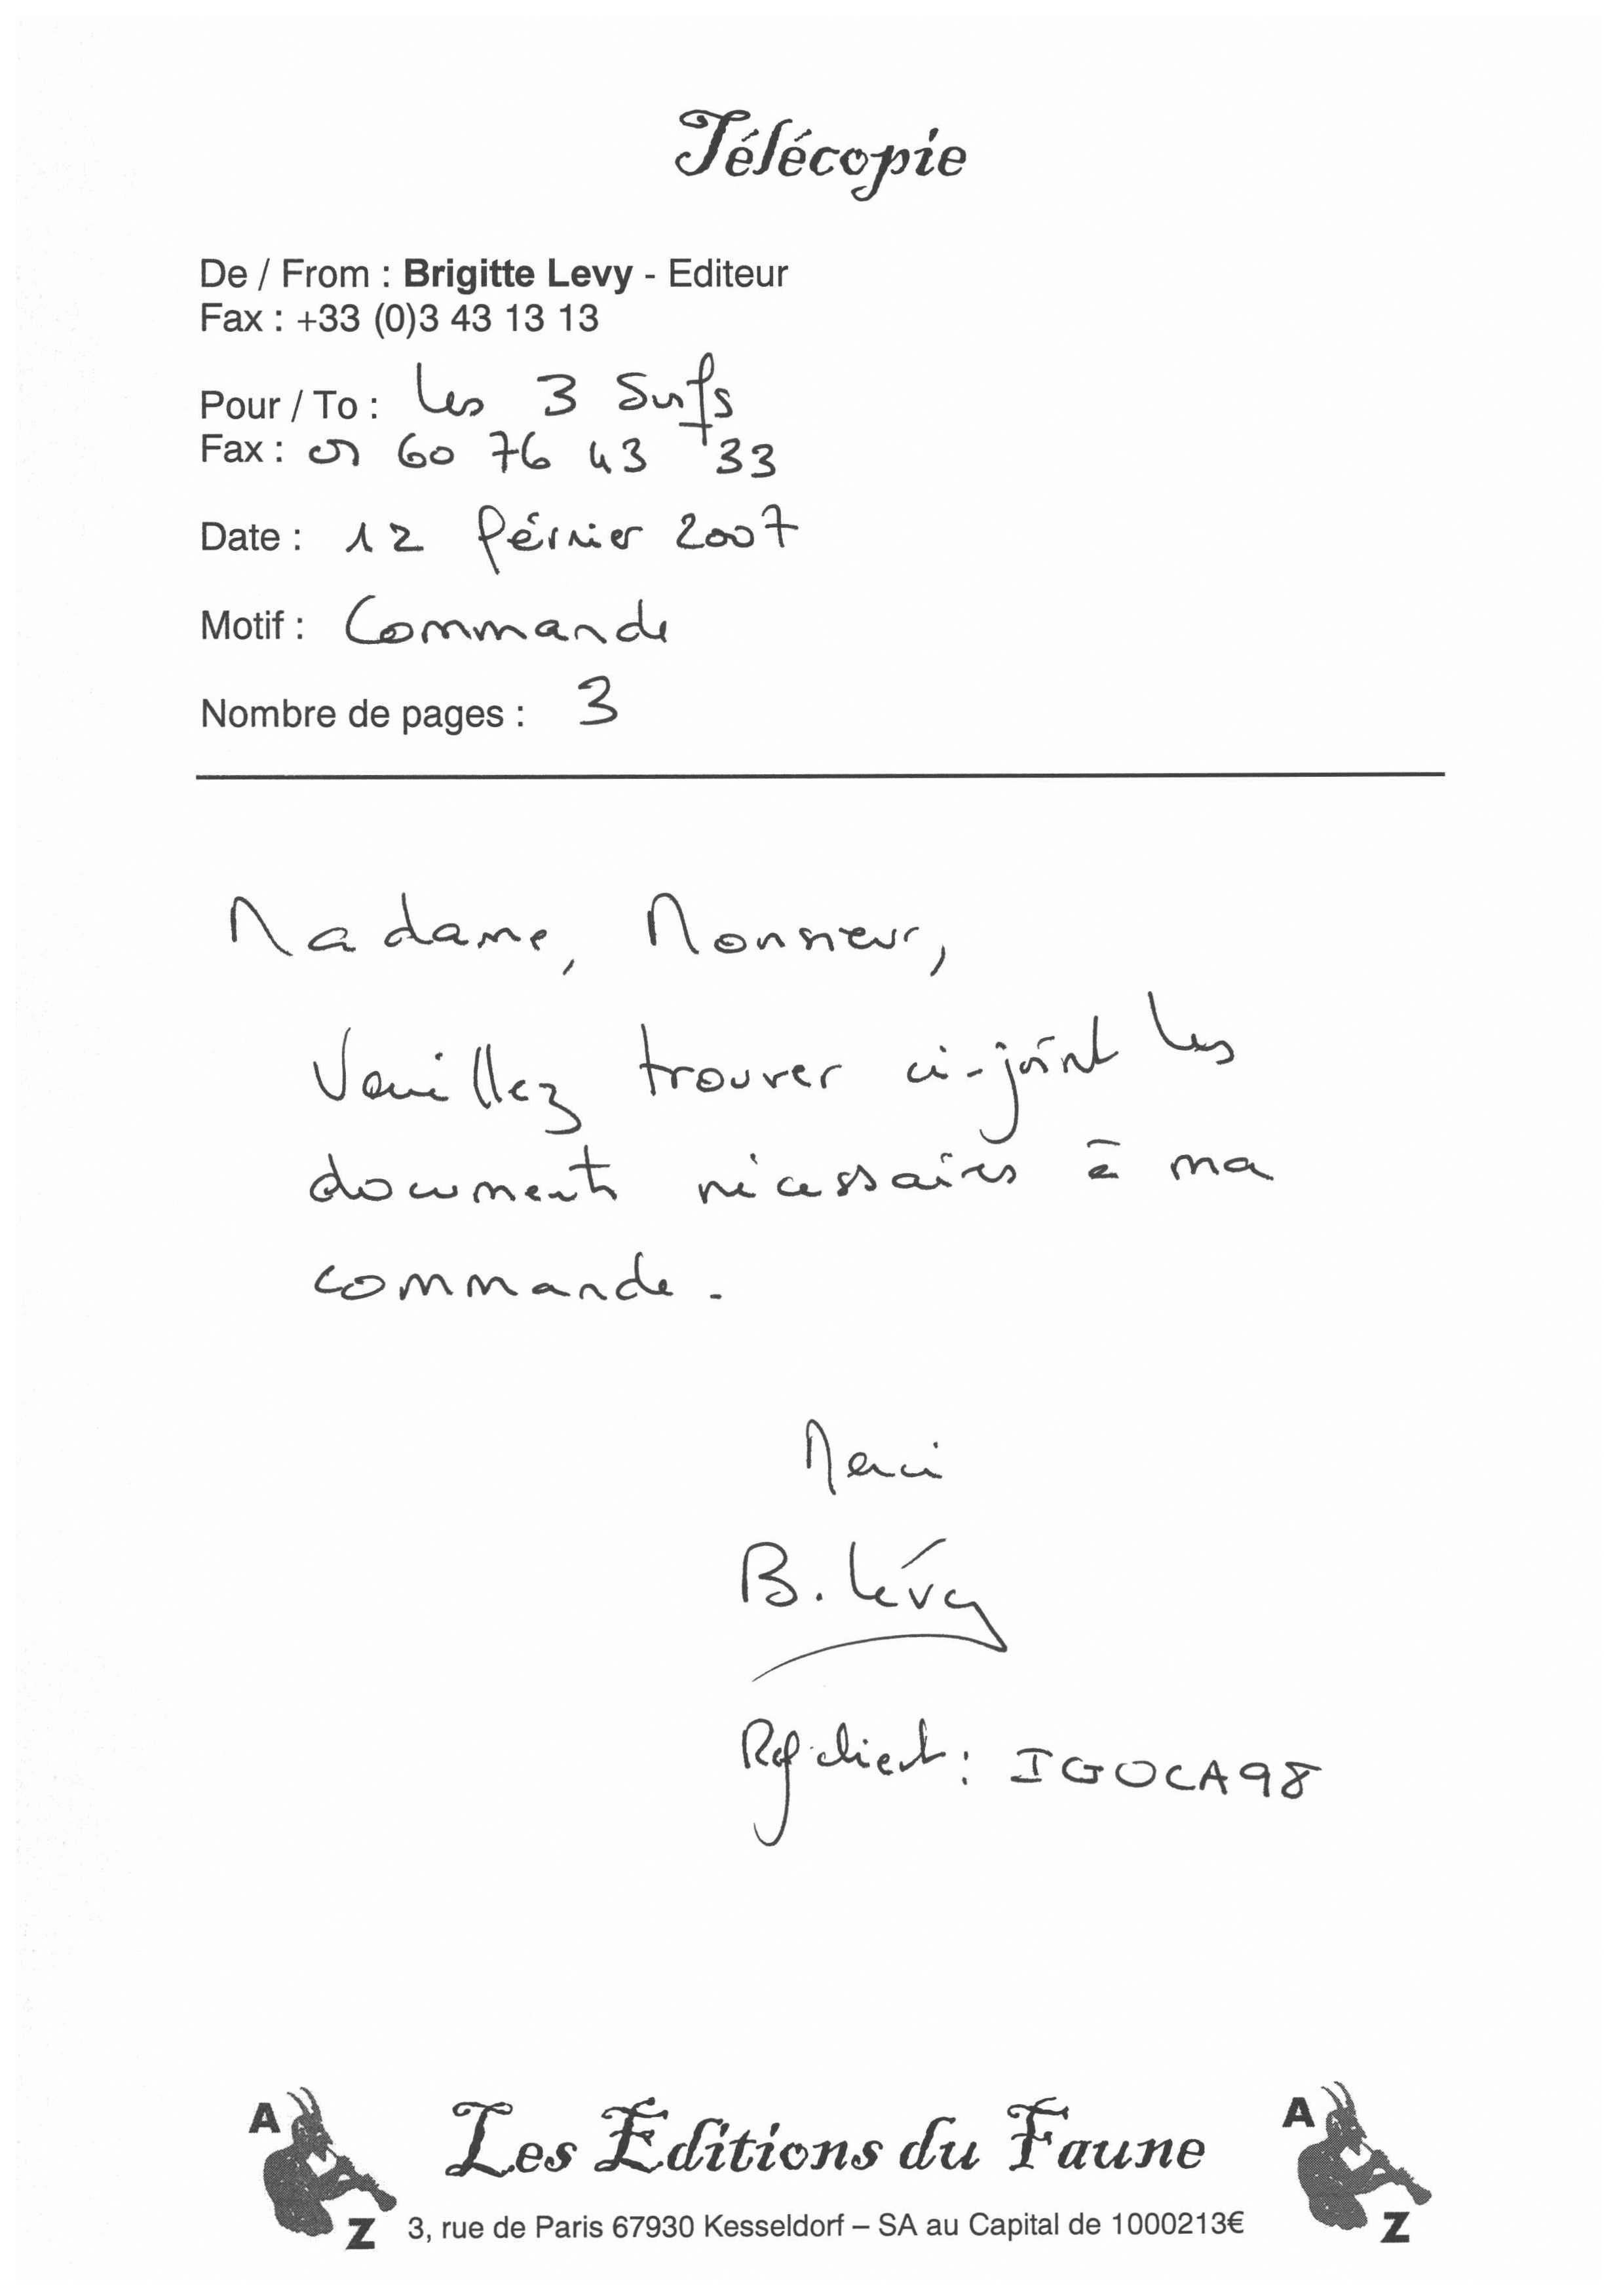 Télécopie
De / From : Brigitte Levy - Editeur
Fax : +33 (0)3 43 13 13
Pour / To : Les 3 Surfs
Fax : 05 60 76 43 33
Date : 12 février 2007
Motif : Commande
Nombre de pages : 3
Madame, Monsieur,
Veuillez trouver ci-joint les
documents nécessaires à ma
commande.
Merci
B. Lévy
Ref client : IGOCA98
A
Les Editions du Faune
A
Z
3, rue de Paris 67930 Kesseldorf – SA au Capital de 1000213€
Z